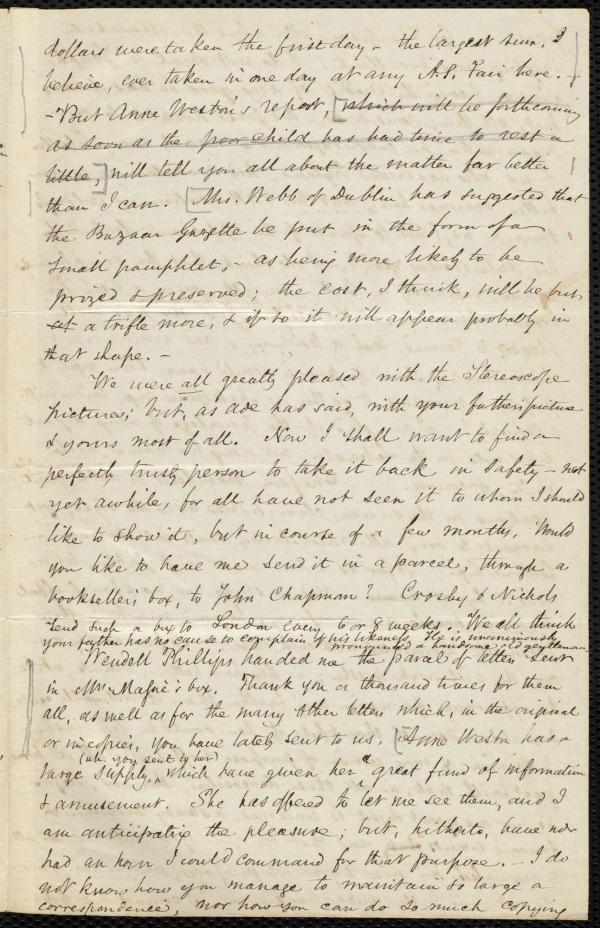 3
dollars were taken the first day - the largest sum, I
believe, ever taken in one day at any A.S. Fair here. -
- But Anne Weston's report, [which will be forthcoming
as soon as the poor child has had time to rest a
little,] will tell you all about the matter far better
than I can. [Mrs. Webb of Dublin has suggested that
the Bazaar Gazette be put in the form of a
small pamphlet, - as being more likely to be
prized & preserved; the cost, I think, will be but
at a trifle more, & if so it will appear probably in
that shape. -
We were all greatly pleased with the Stereoscope
pictures; but, as has said, with your father's picture
& yours most of all. Now I shall want to find a
perfectly trusty person to take it back in safety - not
yet awhile, for all have not seen it to whom I should
like to show'd, but in course of a few months. Would
you like to have me send it in a parcel, through a
bookseller's box, to John Chapman? Crosby & Nichols
send such a box to London every 6 or 8 weeks. We all think
your father has no cause to complain of his likeness. He is unanimously
pronounced a handsome old gentleman.
Wendell Phillips handed me the parcel of letters sent
in Mr. box. Thank you a thousand times for them
all, as well as for the many other letters which, in the original
or in copies, you have lately sent to us. [Anne Weston has a
(wh. you sent to her)
large supply, which have given her a great fund of information
& amusement. She has offered to let me see them, and I
am anticipating the pleasure; but, hitherto, have not
had an hour I could command for that purpose. - I do
not know how you manage to maintain so large a
correspondence, nor how you can do so much copying